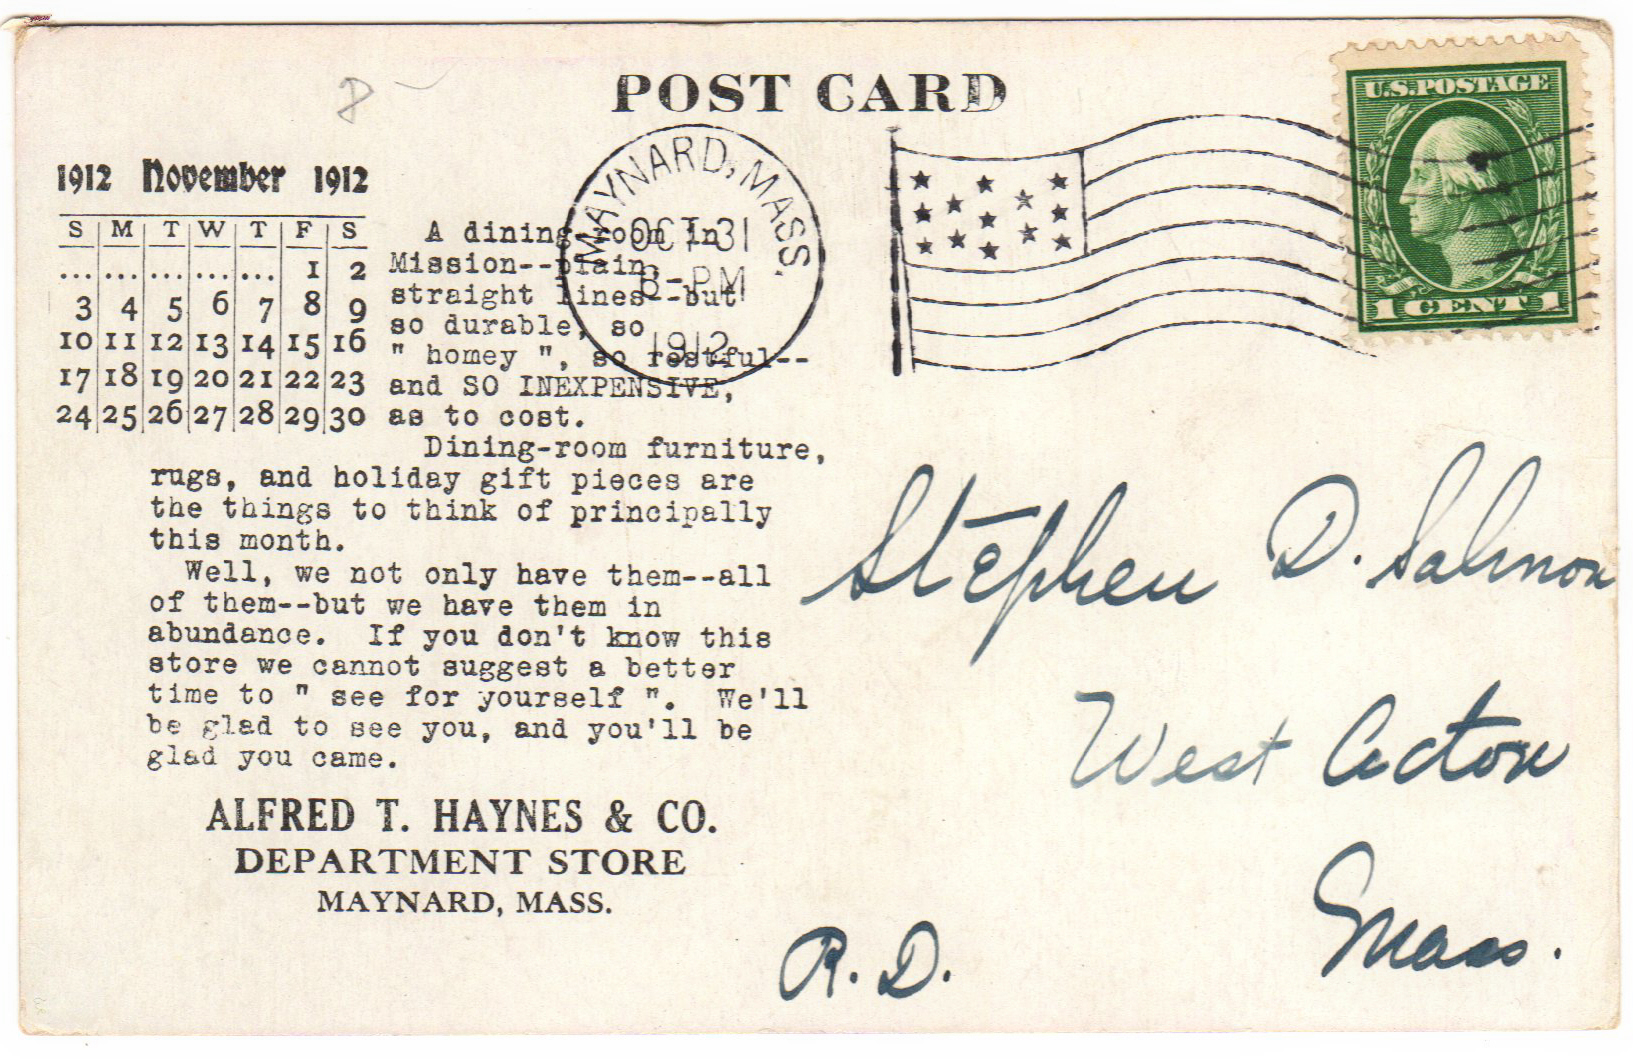 POST CARD
U.S. POSTAGE
1 CENT 1
MAYNARD, MASS.
OCT 31
PM
1912
1912 November 1912
S M T W T F S
... ... ... ... ... 1 2
3 4 5 6 7 8 9
10 11 12 13 14 15 16
17 18 19 20 21 22 23
24 25 26 27 28 29 30
A dining-room in
Mission--plain,
straight lines--but
so durable, so
" homey ", so restful--
and SO INEXPENSIVE,
as to cost.
Dining-room furniture,
rugs, and holiday gift pieces are
the things to think of principally
this month.
Well, we not only have them--all
of them--but we have them in
abundance. If you don't know this
store we cannot suggest a better
time to " see for yourself ". We'll
be glad to see you, and you'll be
glad you came.
ALFRED T. HAYNES & CO.
DEPARTMENT STORE
MAYNARD, MASS.
Stephen D. Salmon
West Acton
Mass.
R. D.